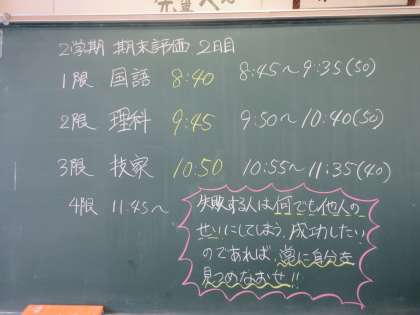 2学期 期末評価 2日目
1限 国語 8:40 8:45～9:35(50)
2限 理科 9:45 9:50～10:40(50)
3限 技家 10:50 10:55～11:35(40)
4限 11:45～
失敗する人は何でも他人の
せいにしてしまう。成功したい
のであれば、常に自分を
見つめなおせ!!